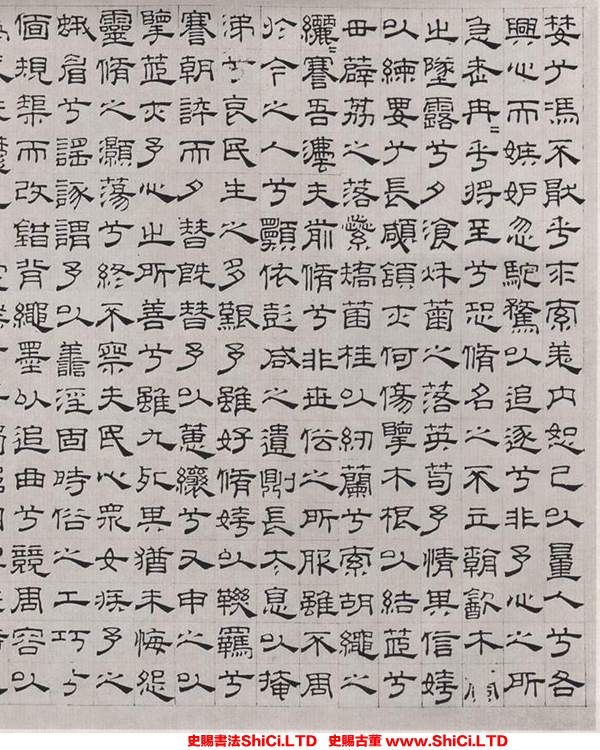 婪兮馮不猒乎求索羌内恕己以量人兮各
興心而嫉妒忽馳騖以追逐兮非予心之所
急老冉=乎將至兮恐脩名之不立朝飲木
之墜露兮夕湌秋菊之落英苟予情其信姱
以練要兮長顑頷亦何傷擥木根以結茝兮
毌薜荔之落蘂矯菌桂以紉蘭兮索胡繩之
纚=謇吾灋夫前脩兮非世俗之所服雖不周
於今之人兮顠依彭咸之遺則長太息以掩
涕兮哀民生之多艱予雖好脩姱以鞿羈兮
謇朝誶而夕替既替予以蕙纕兮又申之以
擥茝亦予心之所善兮雖九死其猶未悔怨
靈脩之灝蕩兮終不察夫民心衆女疾予之
蛾眉兮謠諑謂予以譱淫固時俗之工巧兮
偭規榘而改錯背繩墨以追曲兮競周容以
史賜書法ShiCi.LTD 史賜古董 www.ShiCi.LTD